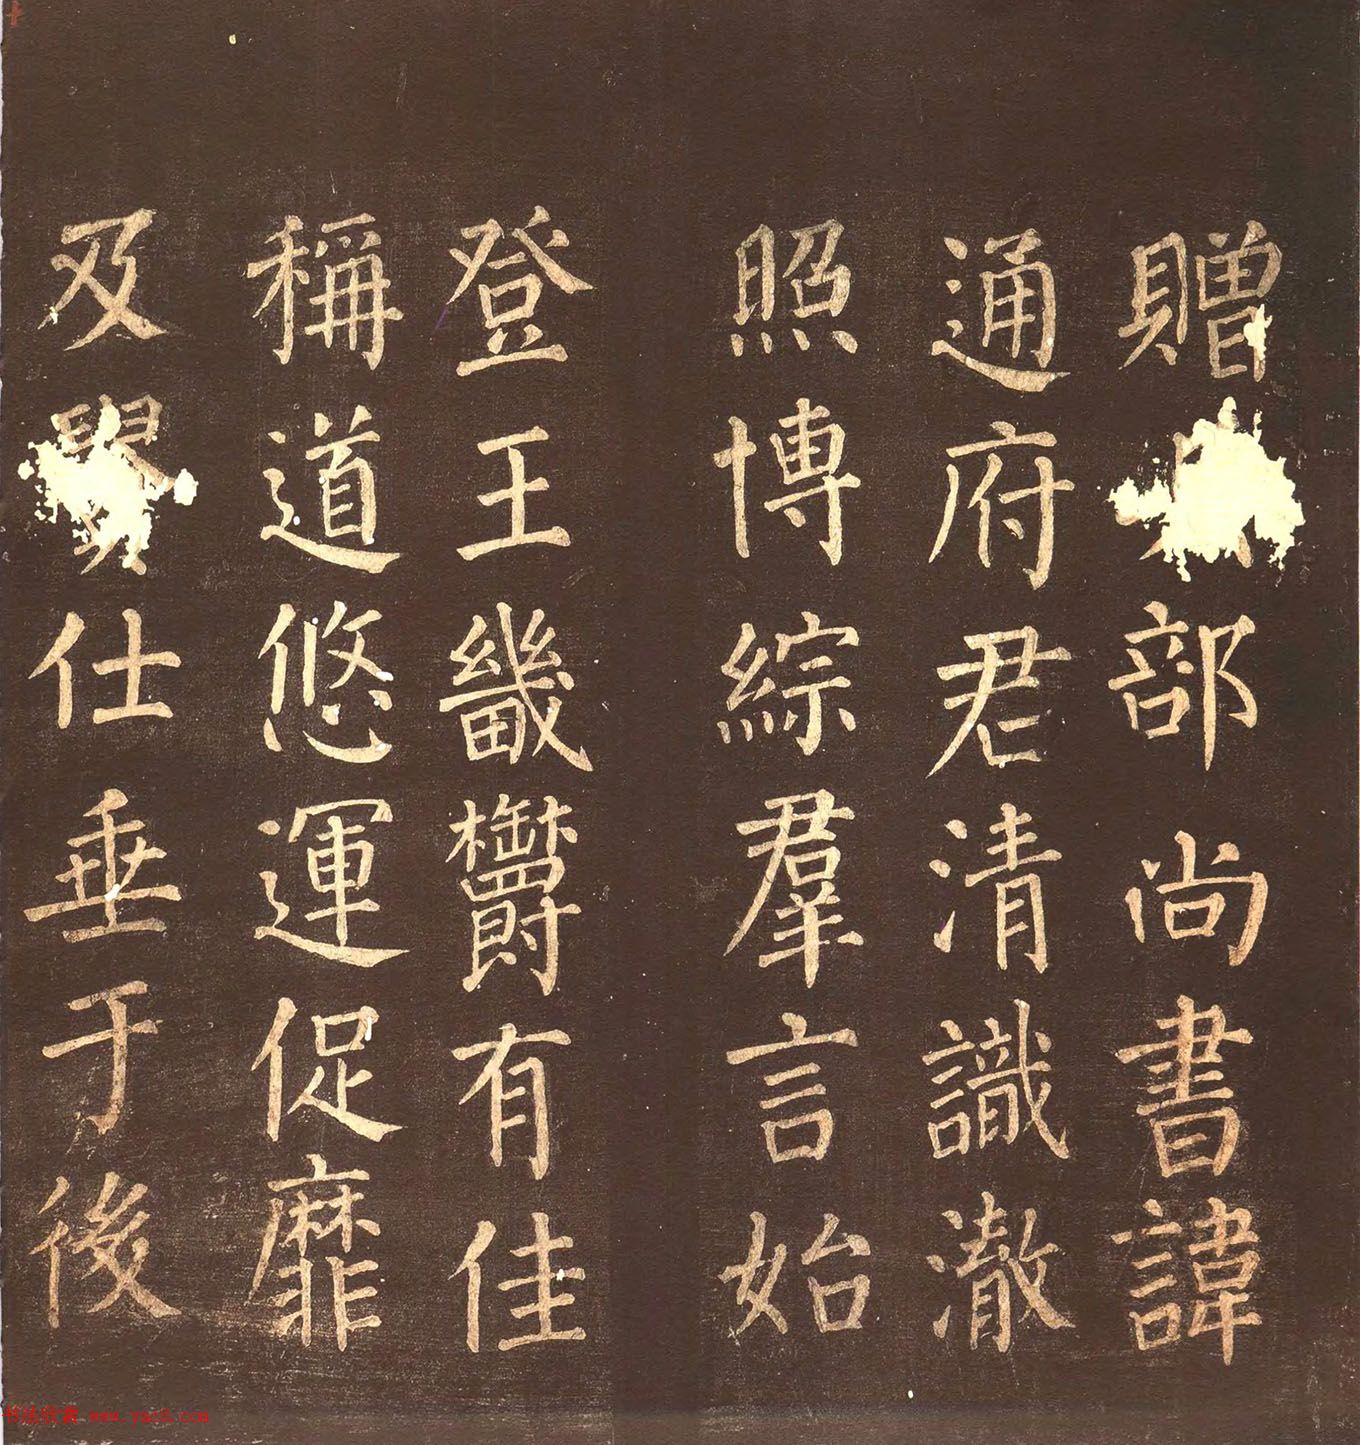 贈部尚書諱
通府君清識澈
照博綜羣言始
登王畿欝有佳
稱道悠運促靡
及仕垂于後
书法欣赏 www.yac8.com